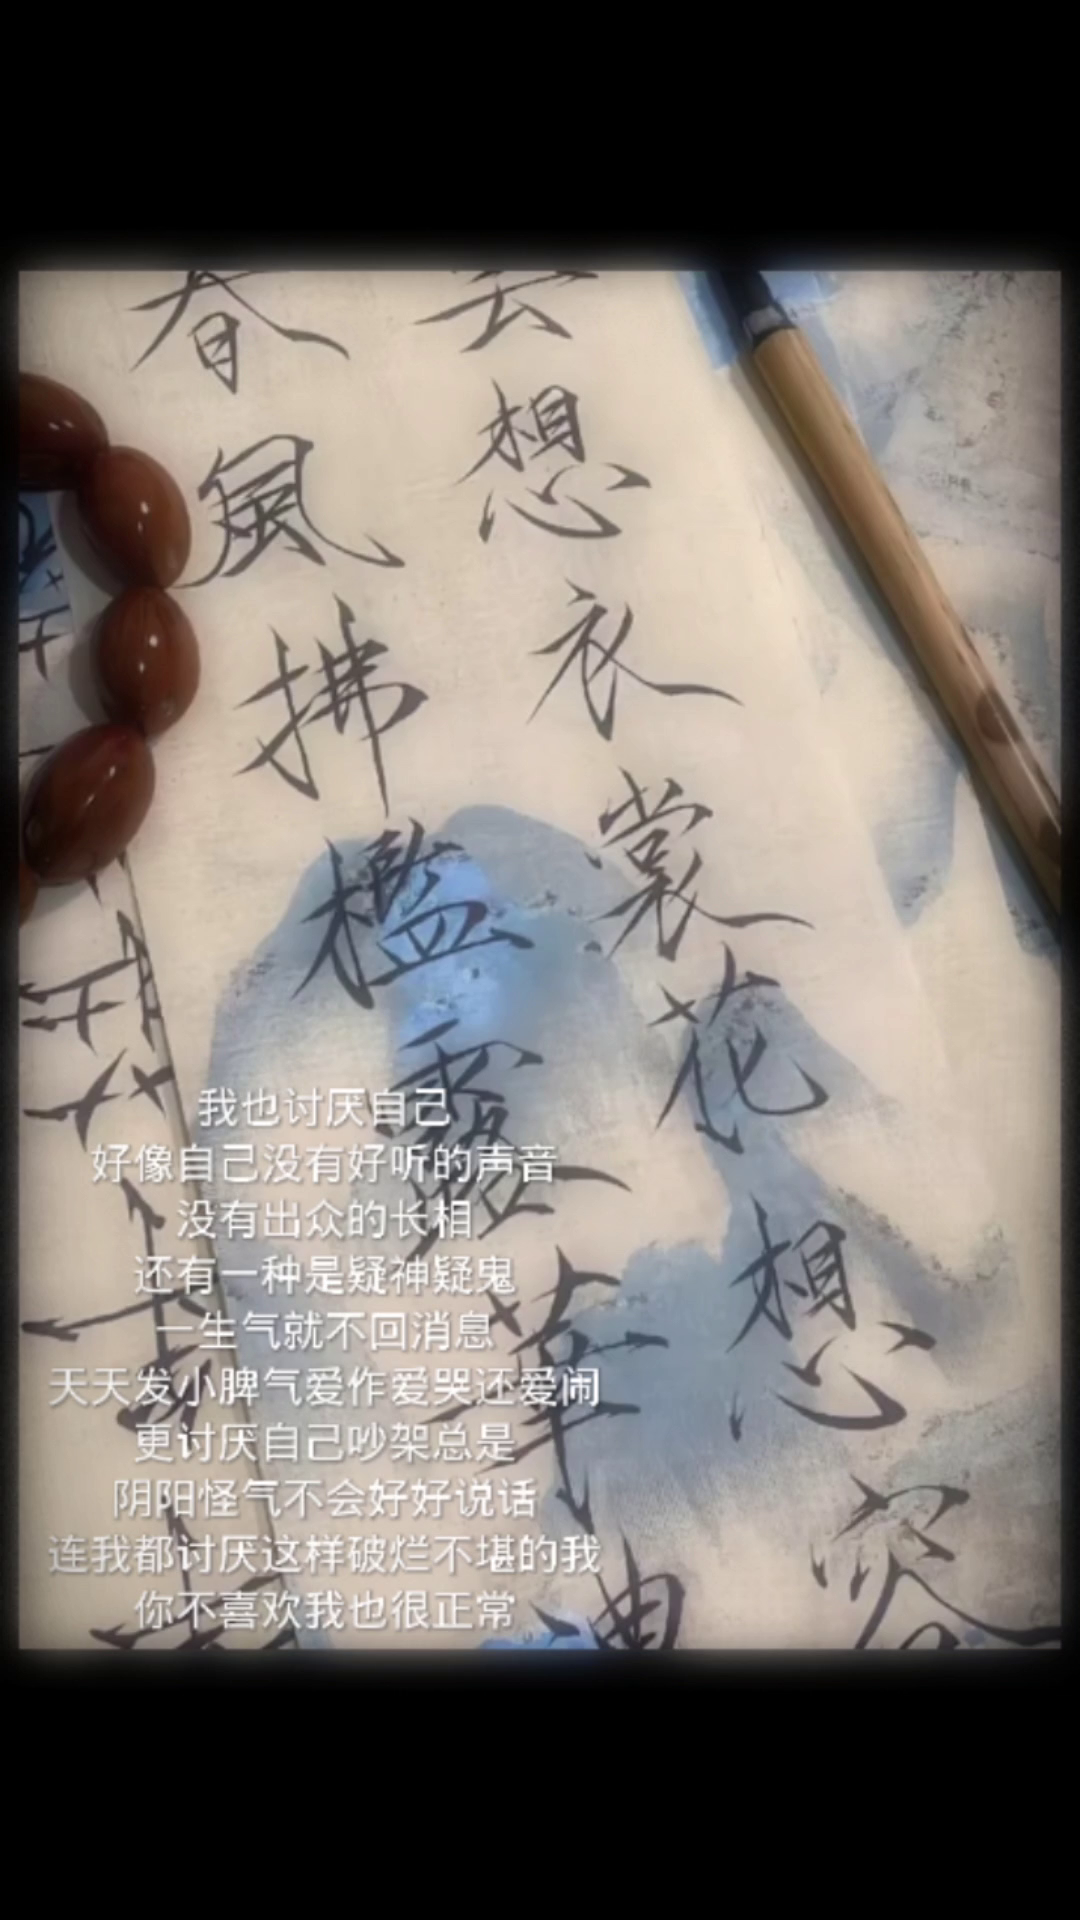 云想衣裳花想容
春風拂檻露華濃
我也讨厌自己
好像自己没有好听的声音
没有出众的长相
还有一种是疑神疑鬼
一生气就不回消息
天天发小脾气爱作爱哭还爱闹
更讨厌自己吵架总是
阴阳怪气不会好好说话
连我都讨厌这样破烂不堪的我
你不喜欢我也很正常